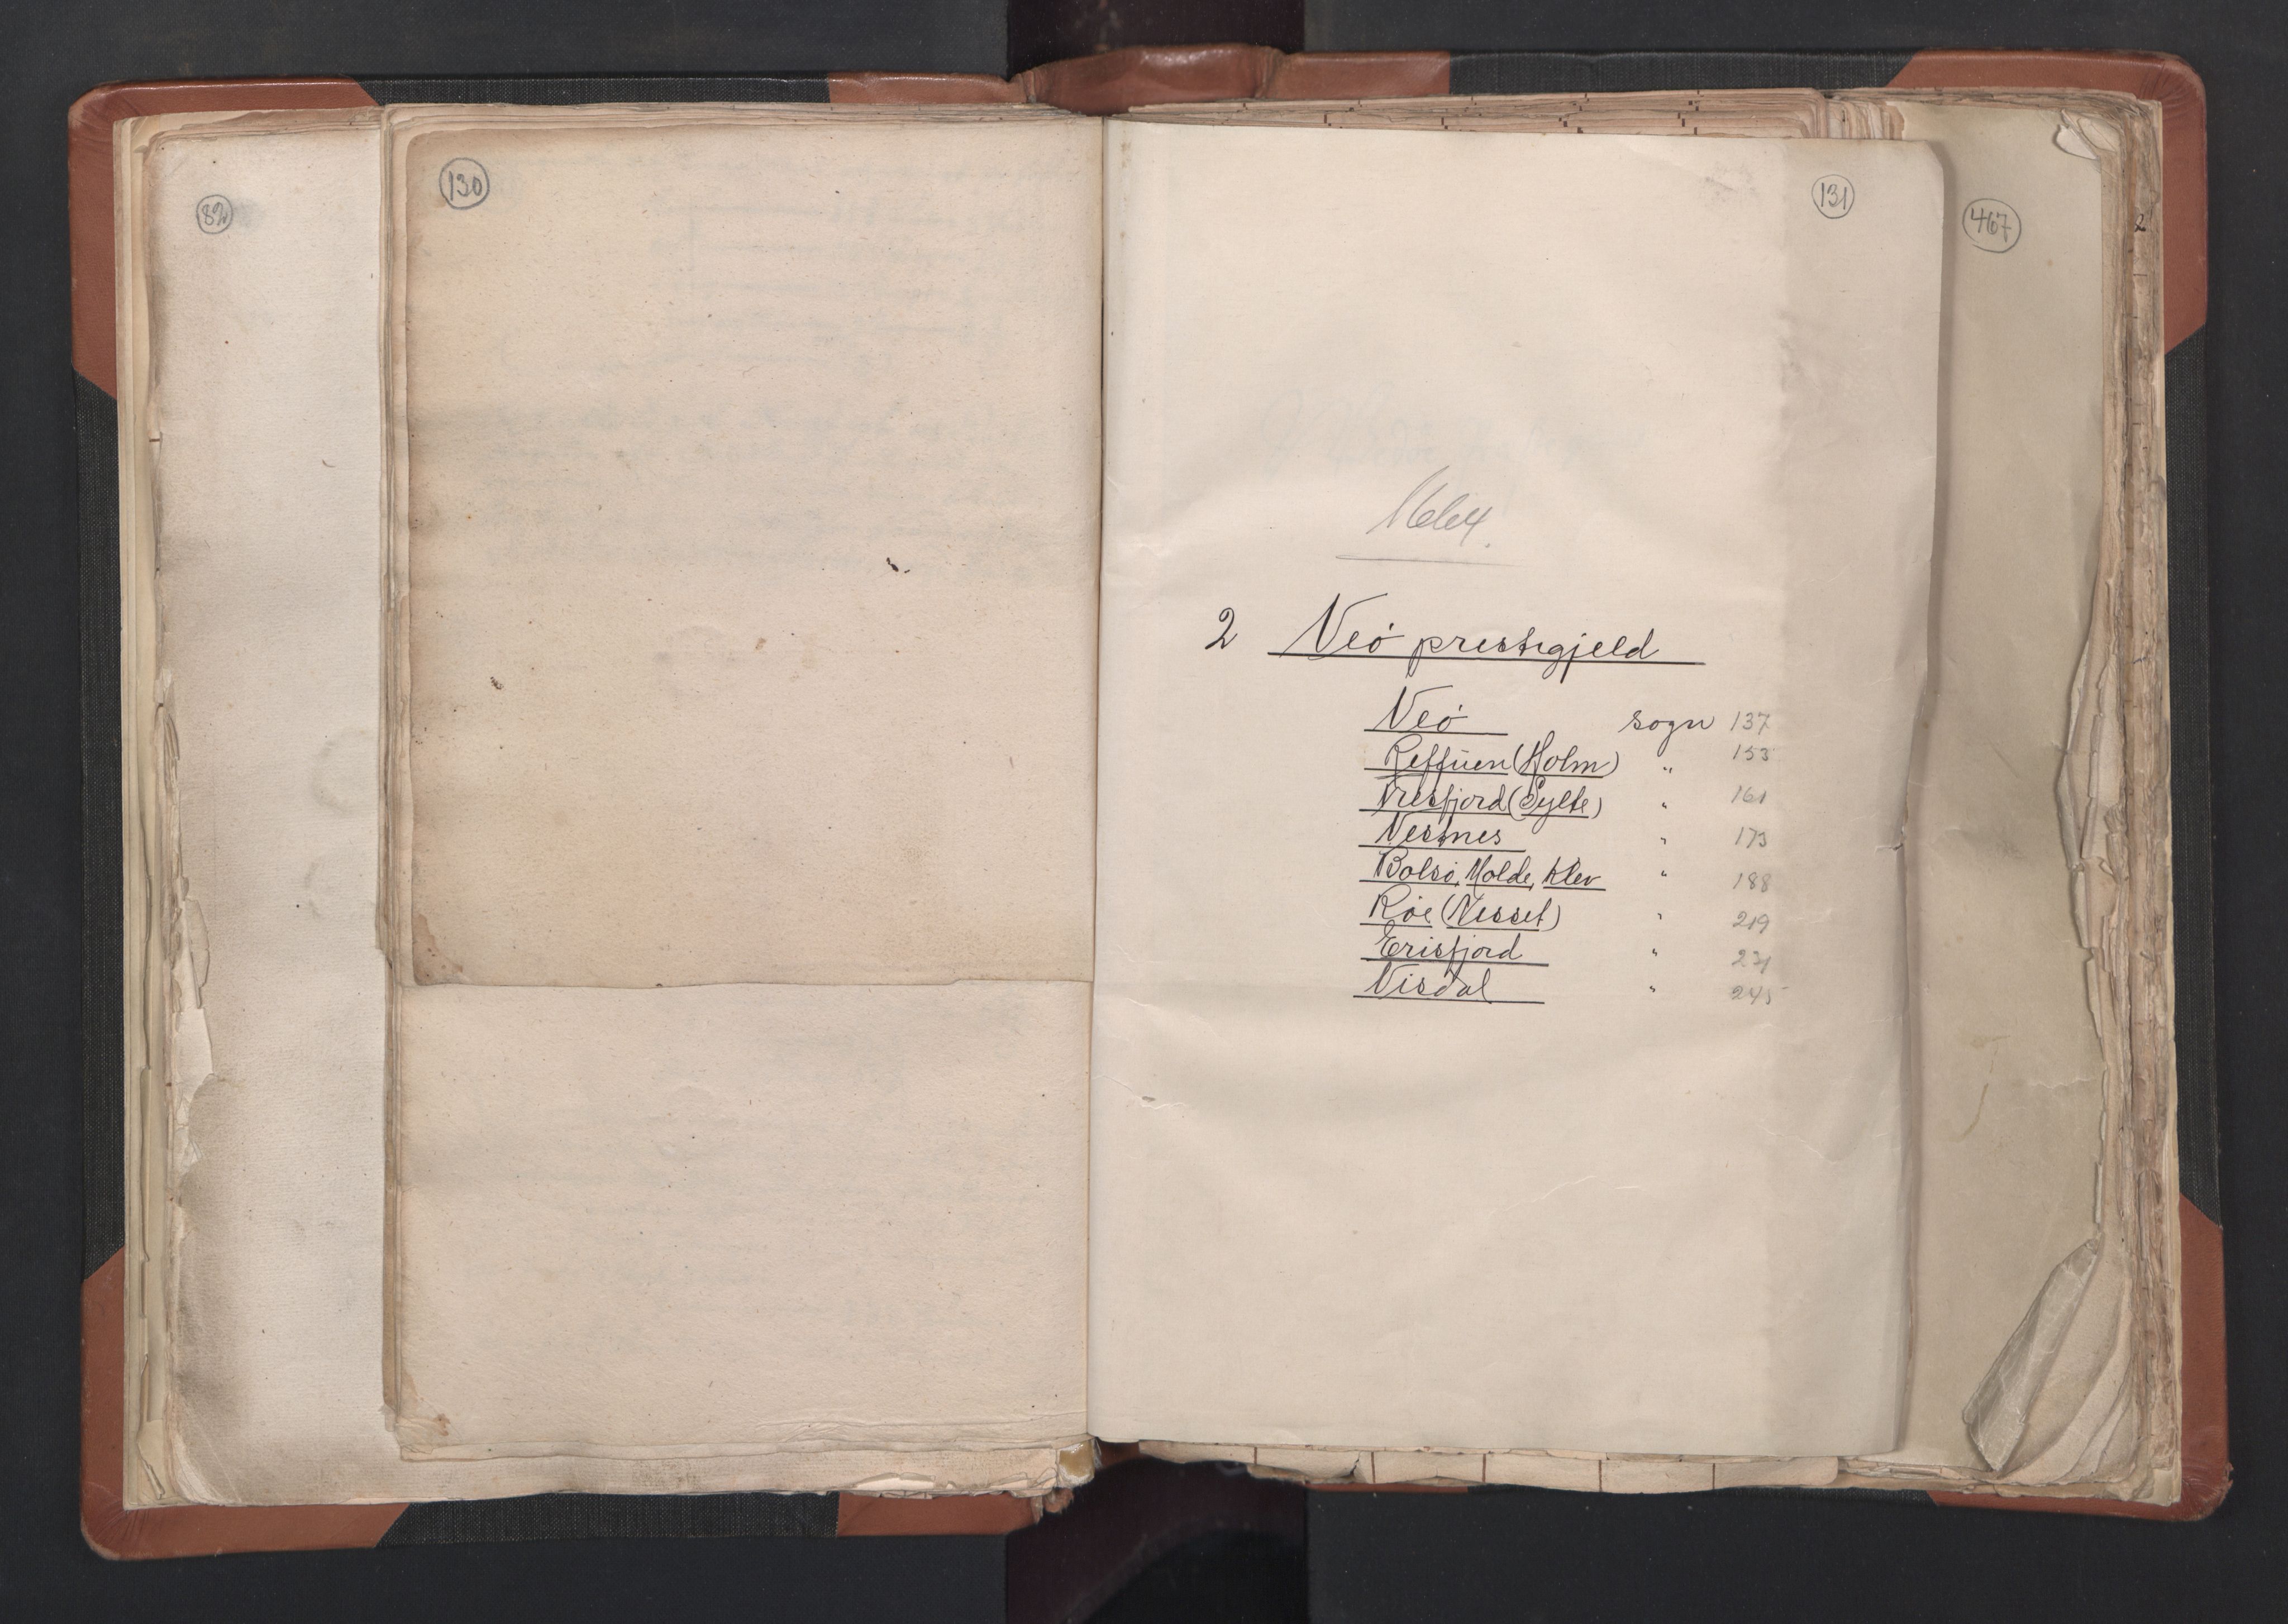 82
130
131
467
2
1664.
2 Veø prestegjeld
Veø sogn 137
Reffuen (Holm) " 153
Vresfjord (Sylte) " 161
Vestnes " 173
Bolsø, Molde, Klev " 188
Røe (Nesset) " 219
Erisfjord " 231
Visdal " 245